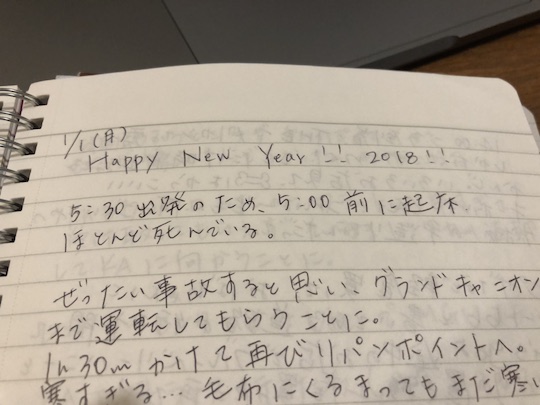 1/1(月)
Happy New Year!! 2018!!
5:30 出発のため、5:00 前に起床
ほとんど死んでいる。
ぜったい事故すると思い、グランドキャニオン
まで運転してもらうことに。
1h30mかけて再びリパンポイントへ。
寒すぎる…毛布にくるまってもまだ寒い